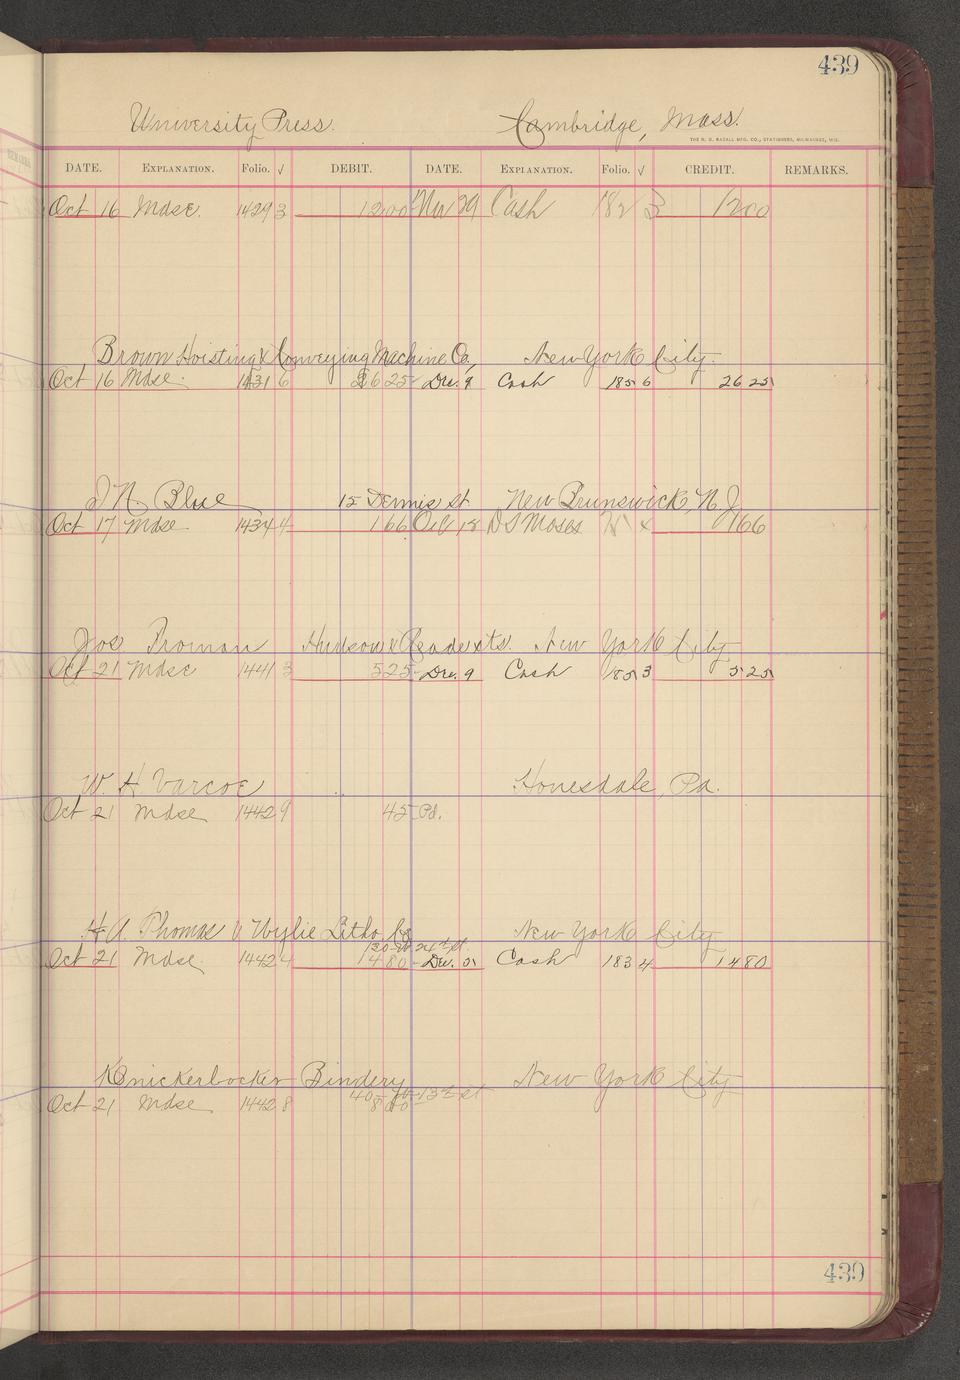 439
University Press. Cambridge, Mass.
THE H. G. RAZALL MFG. CO., STATIONERS, MILWAUKEE, WIS.
DATE. EXPLANATION. Folio. √ DEBIT. DATE. EXPLANATION. Folio. √ CREDIT. REMARKS.
Oct 16 Mdse. 1429 3 1200 Nov 29 Cash 182 3 1200
Brown Hoisting & Conveying Machine Co, New York City.
Oct 16 Mdse. 1431 6 2625 Dec. 9 Cash 185 6 2625
J N. Blue 15 Dennis st New Brunswick, N. J
Oct 17 Mdse 1434 4 166 Oct 18 D S Moses 166
Jos Froman Hudson & Reade sts. New York City
Oct 21 Mdse 1441 3 525 Dec. 9 Cash 185 3 525
W. H. Varcoe Honesdale, Pa.
Oct 21 Mdse 1442 9 45 Pd.
H. A. Thomas & Wylie Litho. Co New York City
130 W 24th st.
Oct 21 Mdse. 1442 4 1480 Dec. Cash 183 4 1480
Knickerbocker Bindery New York City
40 13th st
Oct 21 Mdse 1442 8 800
439